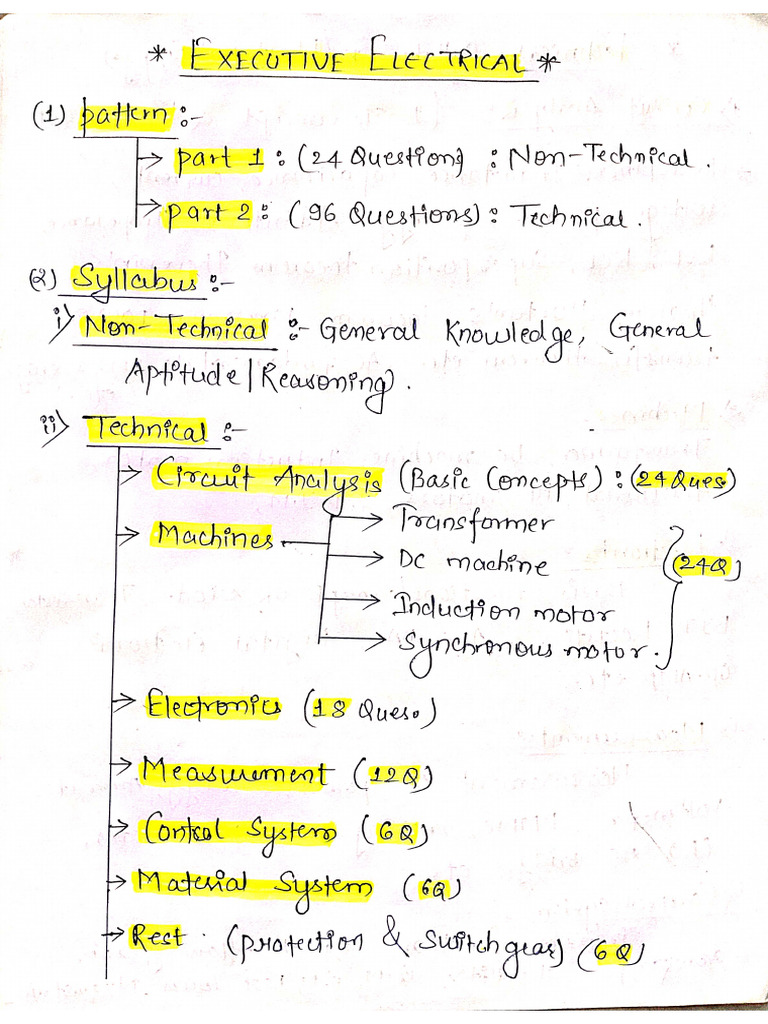 * EXECUTIVE ELECTRICAL *
(1) pattern :-
→ part 1 : (24 Question) : Non-Technical .
→ part 2 : ( 96 Questions) : Technical .
(2) Syllabus :-
i) Non-Technical :- General Knowledge, General
Aptitude/Reasoning) .
ii) Technical :-
→ Circuit Analysis (Basic Concepts) : (24 Ques)
→ Machines → Transformer
→ DC machine (24Q)
→ Induction motor
→ Synchronous motor .
→ Electronics (18 Ques.)
→ Measurement (12Q)
→ Control System (6Q)
→ Material System (6Q)
→ Rest . (protection & Switchgear) (6Q)